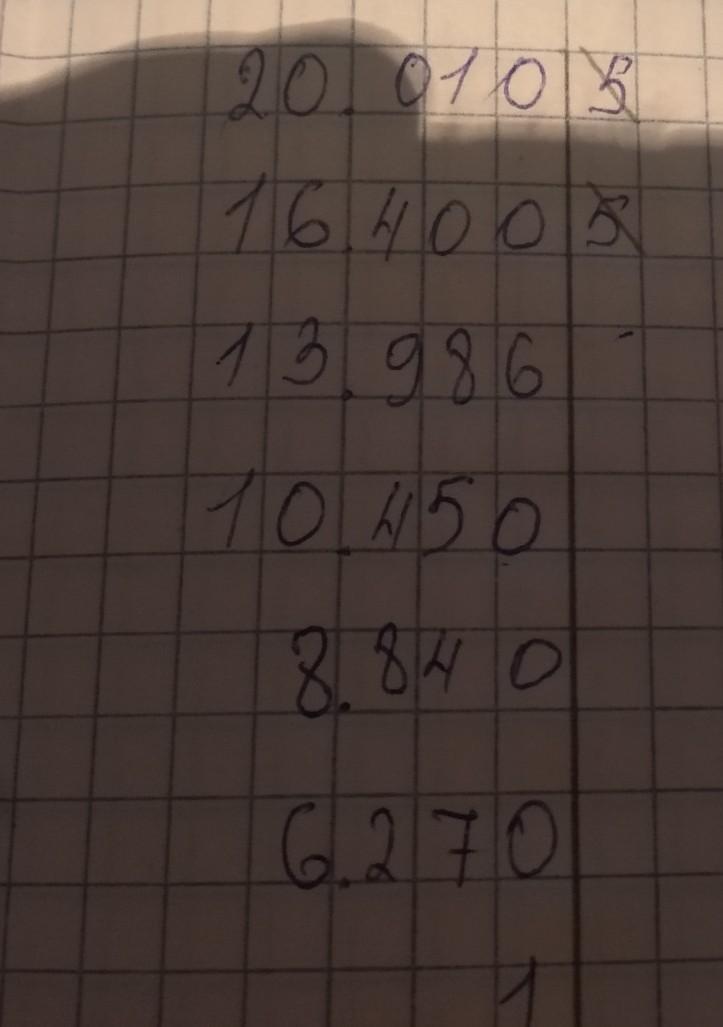 20.010 5
16.400 5
13.986
10.450
8.840
6.270
1